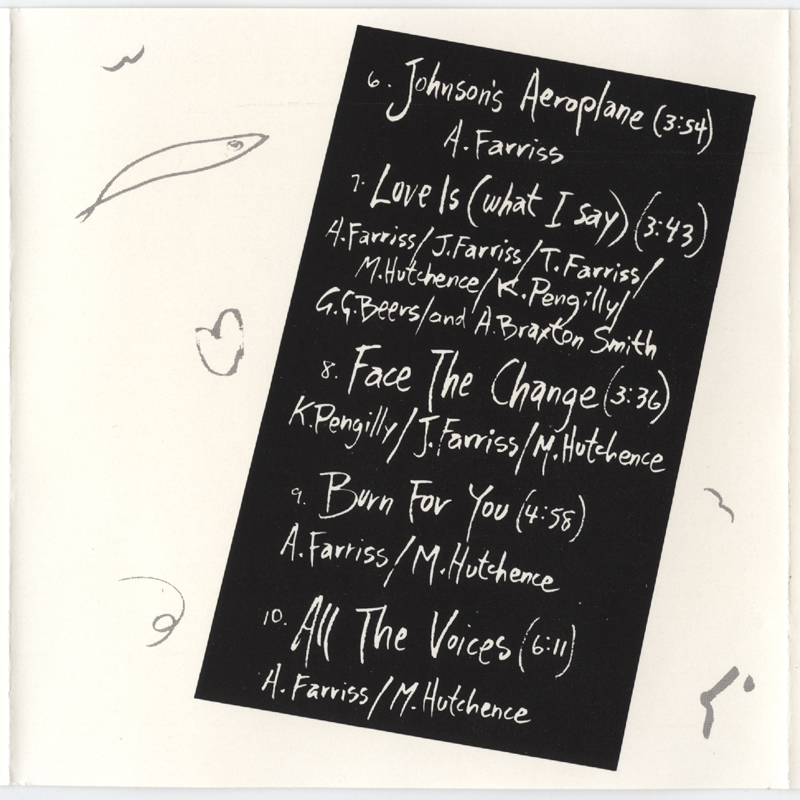 6. Johnson's Aeroplane (3:54)
A. Farriss
7. Love Is (what I say) (3:43)
A.Farriss/J.Farriss/T.Farriss/
M.Hutchence/K.Pengilly/
G.G.Beers/and A.Braxton Smith
8. Face The Change (3:36)
K.Pengilly/J.Farriss/M.Hutchence
9. Burn For You (4:58)
A.Farriss/M.Hutchence
10. All The Voices (6:11)
A. Farriss/M.Hutchence